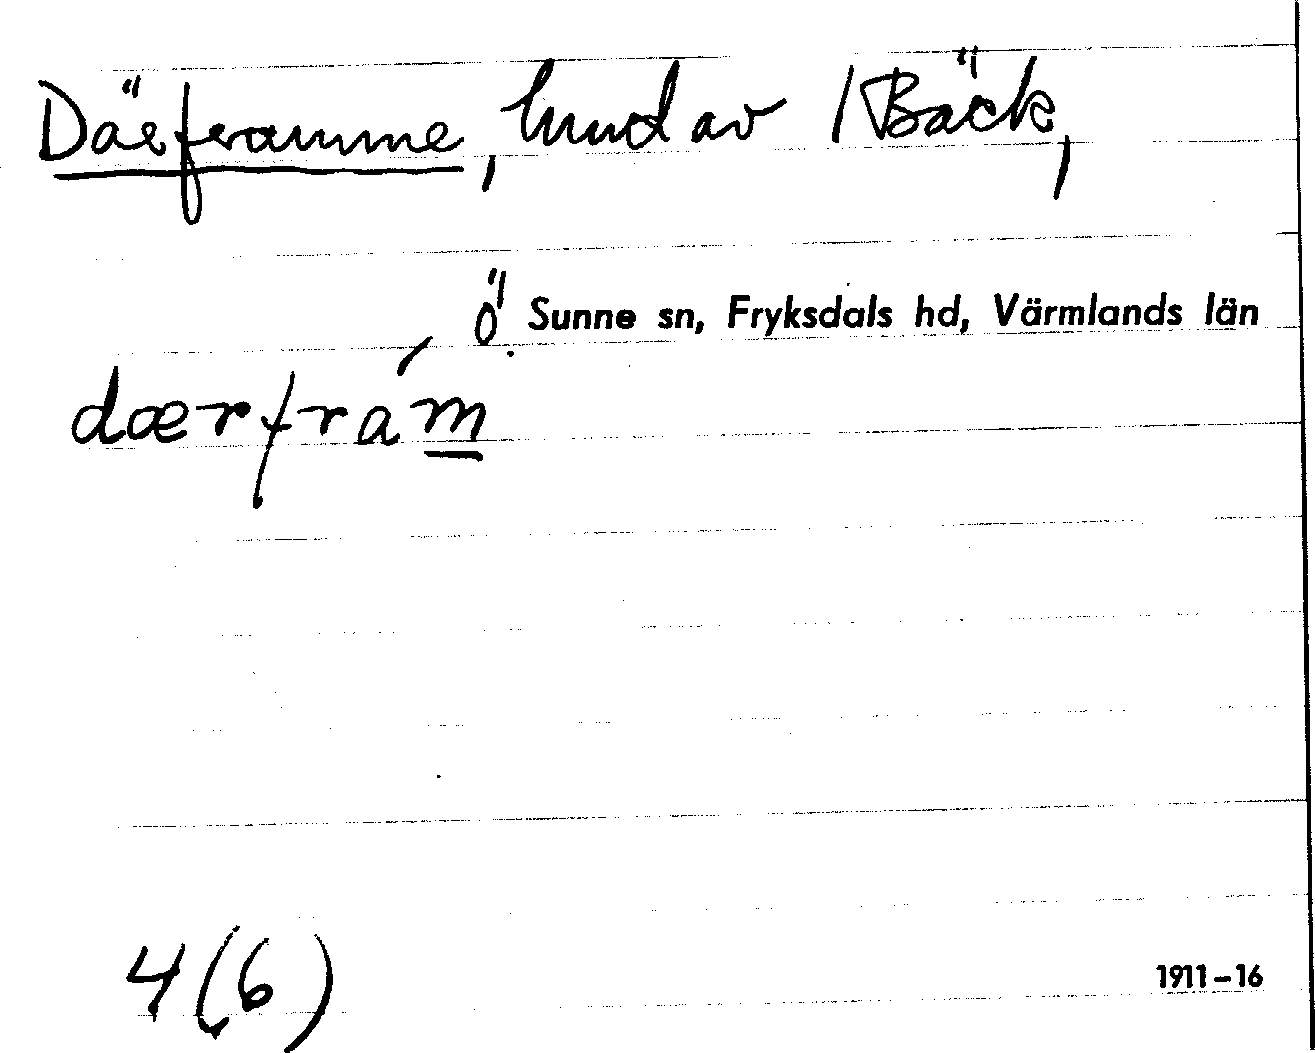 Därframme, hmd av 1 Bäck,
Ö Sunne sn, Fryksdals hd, Värmlands län
dærfrám
4 (6)
1911-16